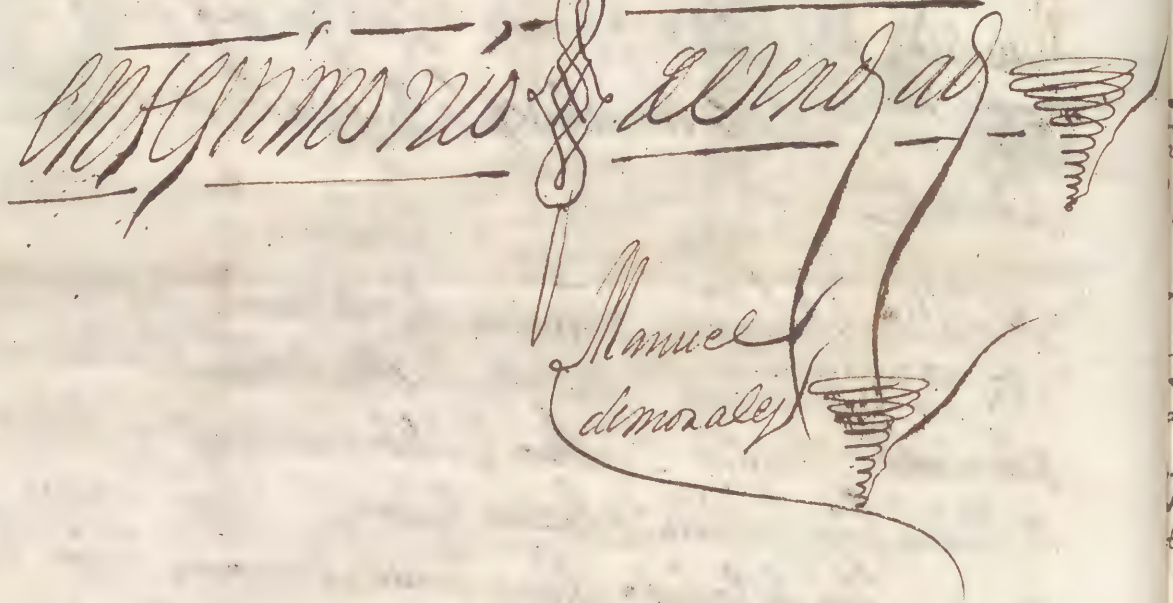 en testimonio de verdad
Manuel
de morales